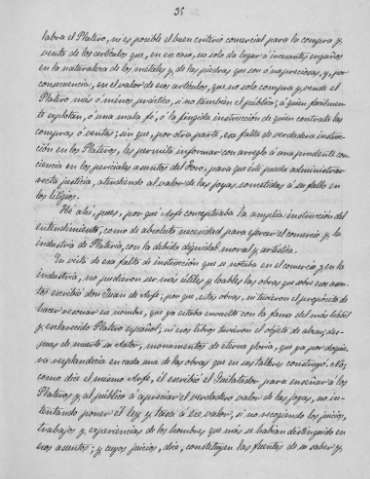 35
labra el Platero, ni es posible el buen criterio comercial para la compra y
venta de los artículos que, en su caso, no solo da lugar á incesantes engaños
en la naturaleza de los metales y de las piedras que son ó no preciosas, y, por
consecuencia, en el valor de esos artículos, que no solo compra y vende el
Platero más ó menos práctico, si no tambien el público; á quien facilmente
explotan, ó una mala fe, ó la fingida instruccion de quien contrate las
compras ó ventas; sin que, por otra parte, esa falta de verdadera instruc-
cion en los Plateros, les permita informar con arreglo á una prudente con
ciencia en los periciales asuntos del Foro, para que este pueda administrar
recta justicia, atendiendo al valor de las joyas sometidas á su fallo en
los litigios.
Hé ahí, pues, por qué Arfe conceptuaba la amplia instruccion del
entendimiento, como de absoluta necesidad para ejercer el comercio y la
industria de Platería, con la debida dignidad moral y artística.
En vista de esa falta de instruccion que se notaba en el comercio y en la
industria, no pudieron ser más útiles y loables las obras que sobre esos asun-
tos escribió don Juan de Arfe; por que estas obras, ni tuvieron el propósito de
hacer resonar su nombre, que ya estaba envuelto con la fama del más hábil
y esclarecido Platero español, ni esos libros tuvieron el objeto de alzar, des-
pues de muerto su autor, monumentos de eterna gloria, que ya por doquie-
ra resplandecia en cada una de las obras que en sus talleres construyó. No;
como dice el mismo Arfe, él escribió el Quilatador para enseñar á los
Plateros y al público á apreciar el verdadero valor de las joyas, no in-
tentando poner él ley y tasa á ese valor, si no recogiendo los juicios,
trabajos y experiencias de los hombres que más se habian distinguido en
esos asuntos; y cuyos juicios, dice, constituyen las fuentes de su saber y